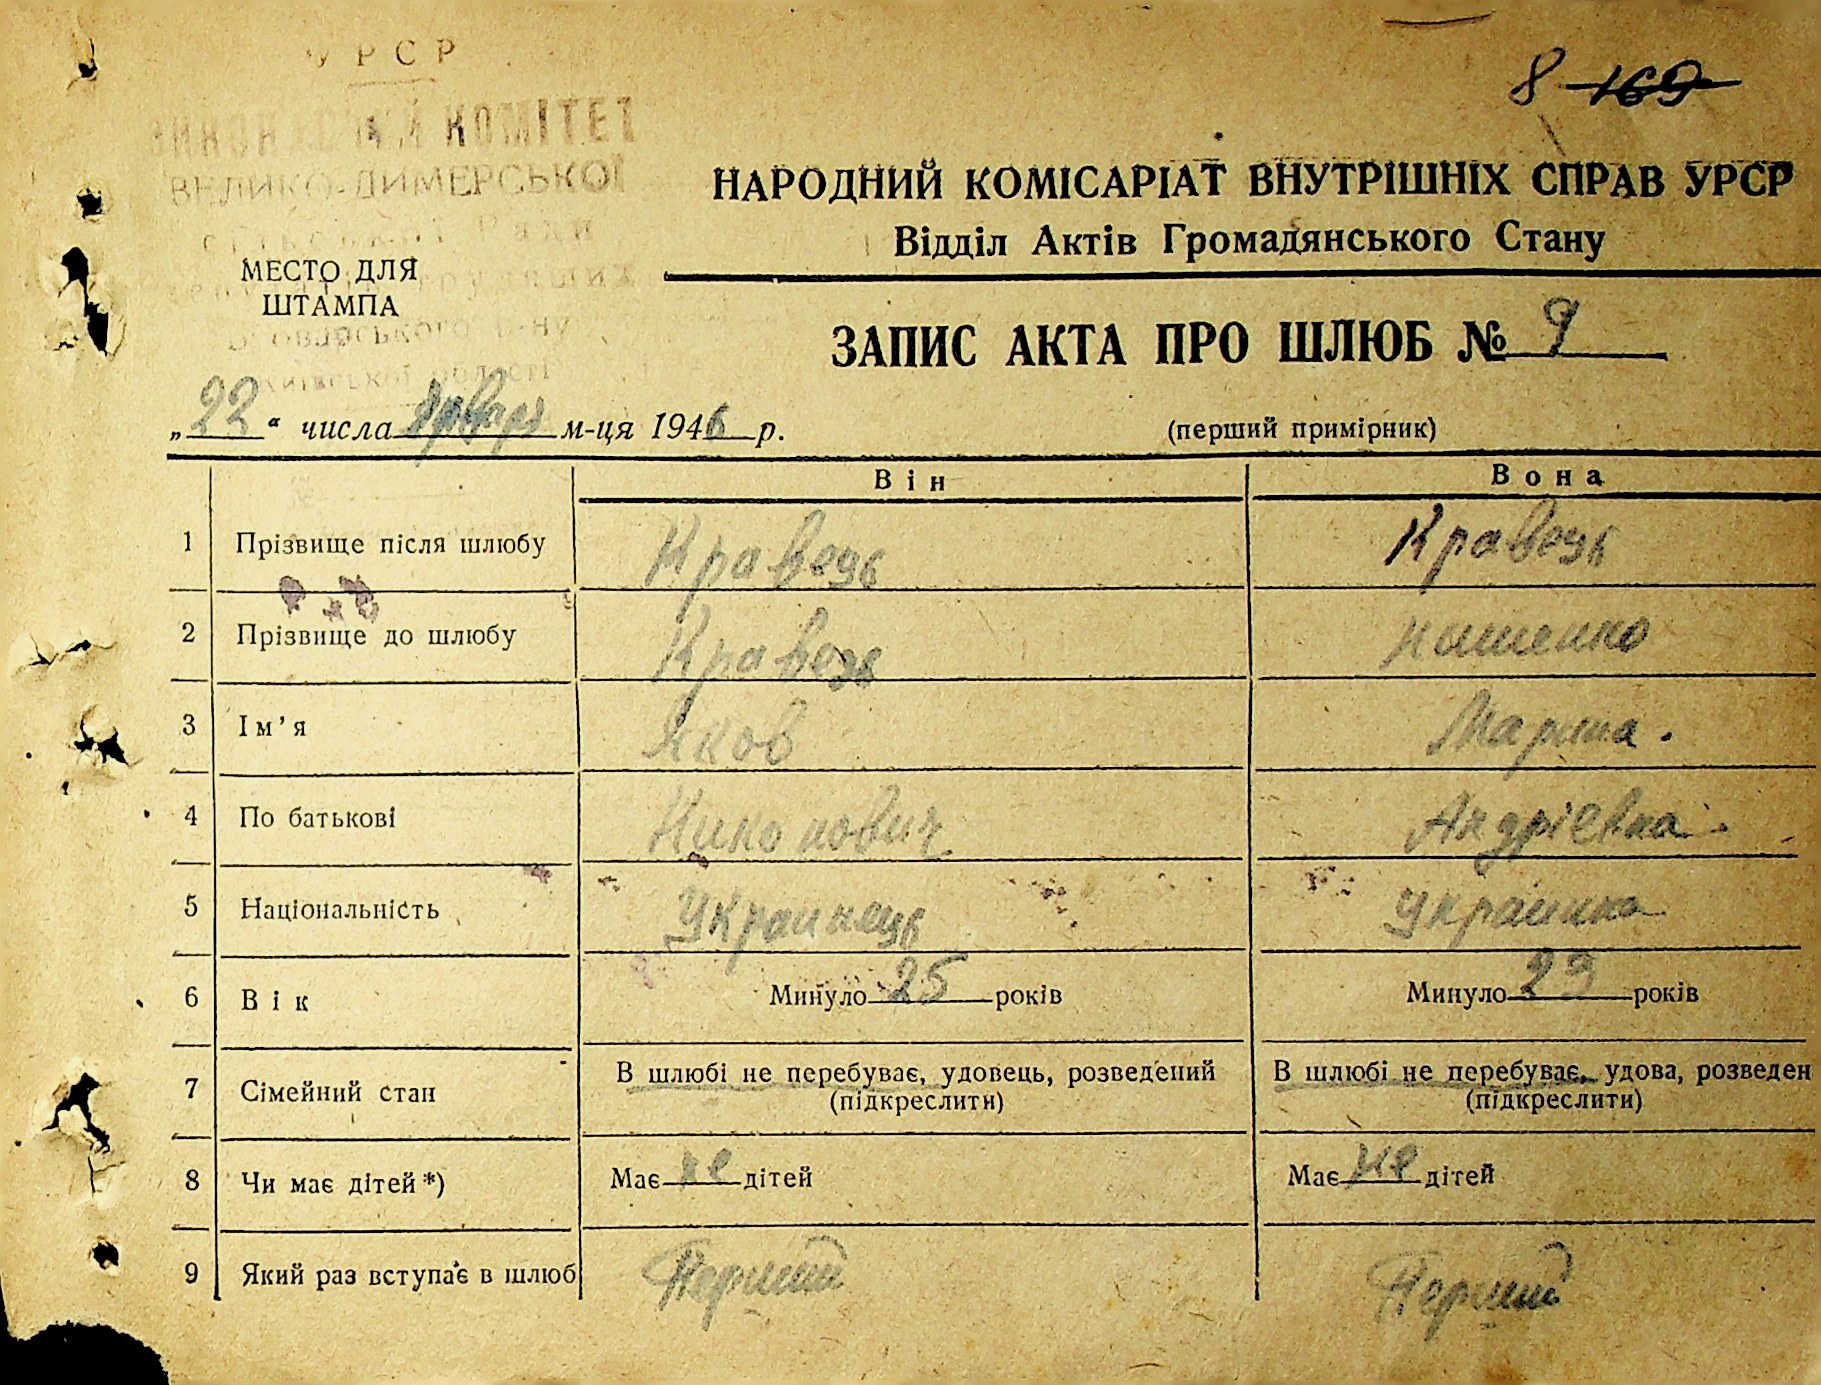 УРСР
ВИКОНАВЧИЙ КОМІТЕТ
ВЕЛИКО-ДИМЕРСЬКОЇ
сільської Ради
Броварського р-ну
Київської області
МЕСТО ДЛЯ
ШТАМПА
8 169
НАРОДНИЙ КОМІСАРІАТ ВНУТРІШНІХ СПРАВ УРСР
Відділ Актів Громадянського Стану
ЗАПИС АКТА ПРО ШЛЮБ № 9
„22“ числа января м-ця 1946 р.
(перший примірник)
Він Вона
1 Прізвище після шлюбу Кравець Кравець
2 Прізвище до шлюбу Кравець
3 Ім’я Яков Марина.
4 По батькові Никонович Андріевна.
5 Національність Украинець Украинка
6 Вік Минуло 25 років Минуло 23 років
7 Сімейний стан В шлюбі не перебуває, удовець, розведений В шлюбі не перебуває, удова, розведен
(підкреслити) (підкреслити)
8 Чи має дітей*) Має не дітей Має не дітей
9 Який раз вступає в шлюб Перший Перший